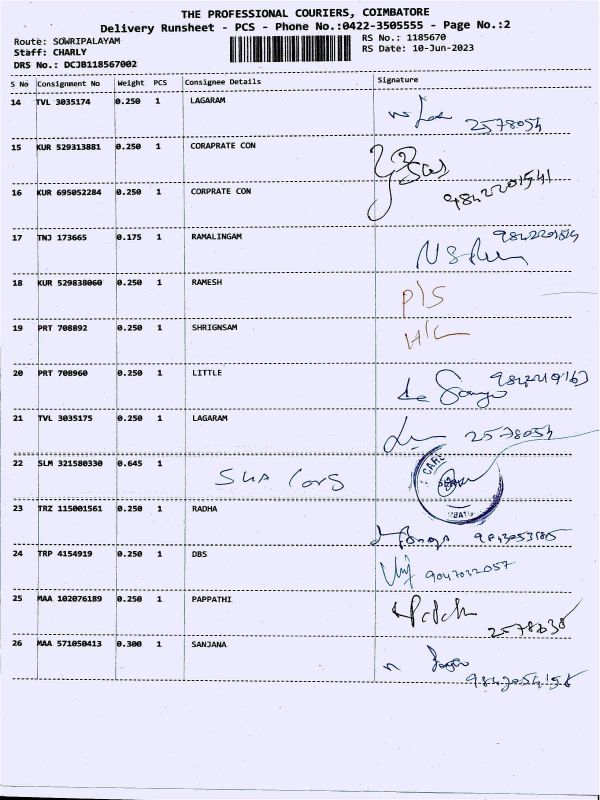 THE PROFESSIONAL COURIERS, COIMBATORE
Delivery Runsheet - PCS - Phone No.:0422-3505555 - Page No.:2
Route: SOWRIPALAYAM
RS No.: 1185670
Staff: CHARLY
RS Date: 10-Jun-2023
DRS No.: DCJB118567002
S No Consignment No Weight PCS Consignee Details Signature
14 TVL 3035174 0.250 1 LAGARAM
2578054
15 KUR 529313881 0.250 1 CORAPRATE CON
16 KUR 695052284 0.250 1 CORPRATE CON
9842201541
17 TNJ 173665 0.175 1 RAMALINGAM
18 KUR 529838060 0.250 1 RAMESH P/S
19 PRT 708892 0.250 1 SHRIGNSAM H/L
20 PRT 708960 0.250 1 LITTLE
21 TVL 3035175 0.250 1 LAGARAM 2578054
22 SLM 321580330 0.645 1
23 TRZ 115001561 0.250 1 RADHA
24 TRP 4154919 0.250 1 DBS
9047032057
25 MAA 102076189 0.250 1 PAPPATHI
26 MAA 571050413 0.300 1 SANJANA